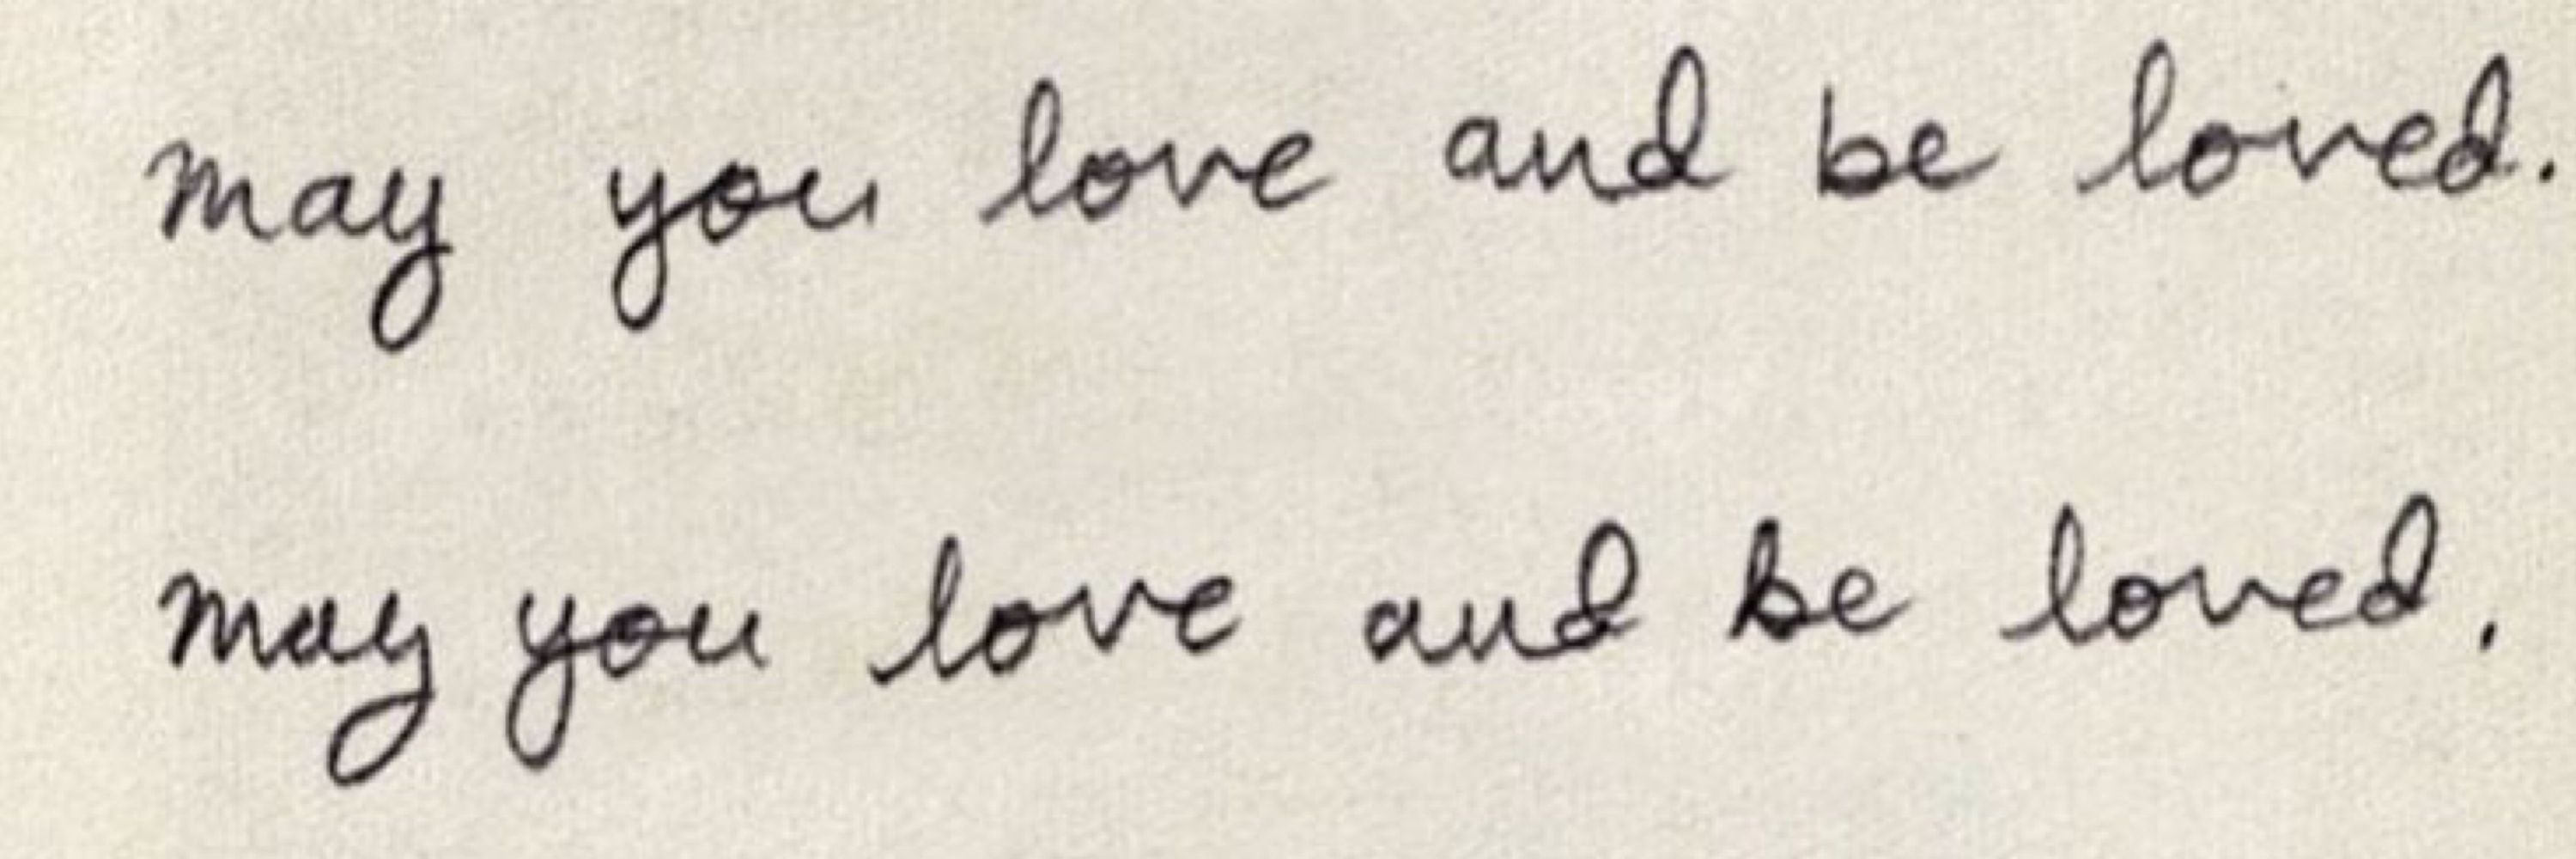 may you love and be loved.
may you love and be loved.